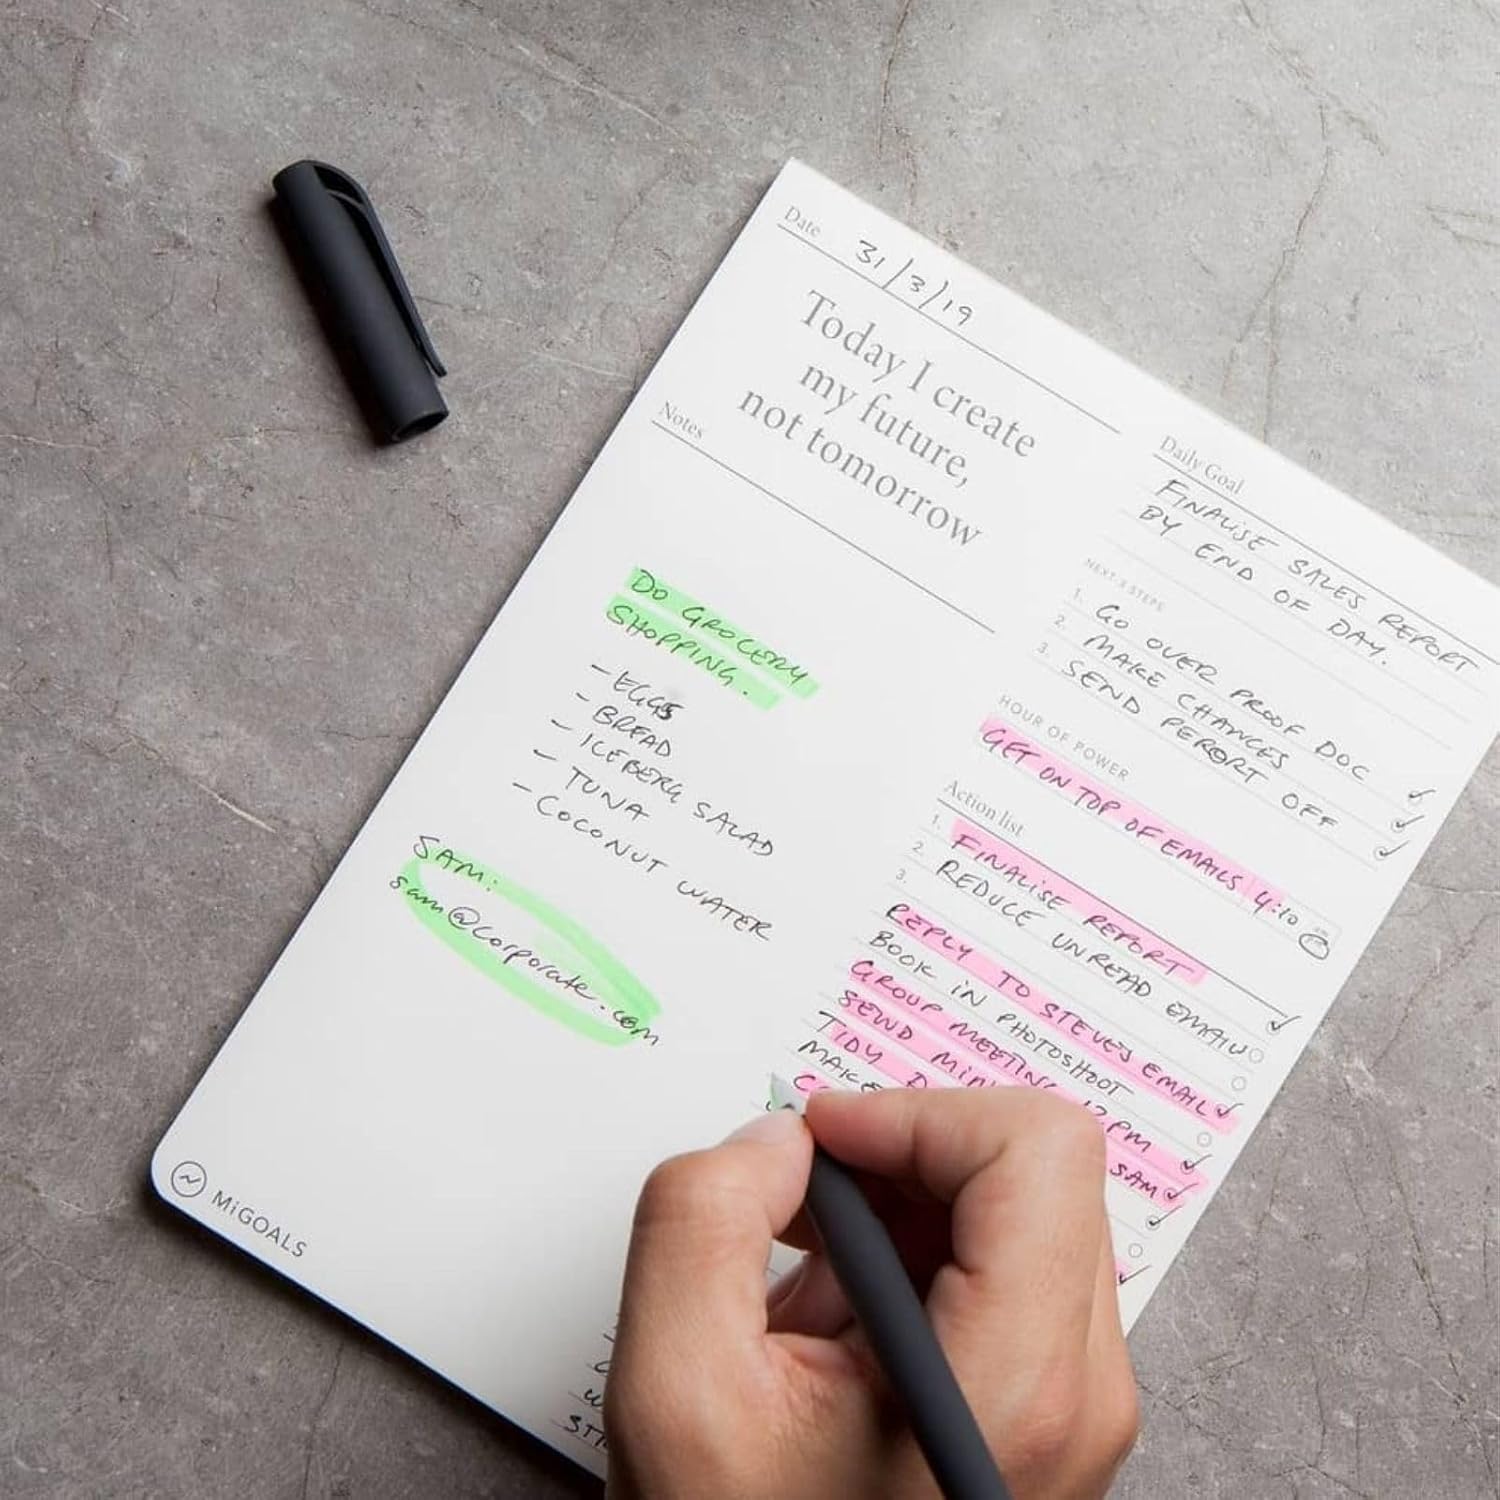 Date
31/3/19
Today I create
my future,
not tomorrow
Notes
DO GROCERY
SHOPPING.
- EGGS
- BREAD
- ICEBERG SALAD
- TUNA
- COCONUT WATER
SAM:
sam@corporate.com
MiGOALS
Daily Goal
FINALISE SALES REPORT
BY END OF DAY.
NEXT 3 STEPS
1. GO OVER PROOF DOC
2. MAKE CHANGES
3. SEND REPORT OFF
HOUR OF POWER
GET ON TOP OF EMAILS 4:10
Action list
1. FINALISE REPORT
2. REDUCE UNREAD EMAILS
3.
REPLY TO STEVES EMAIL
BOOK IN PHOTOSHOOT
GROUP MEETING 12PM
SEND SAM
TIDY
MAKE